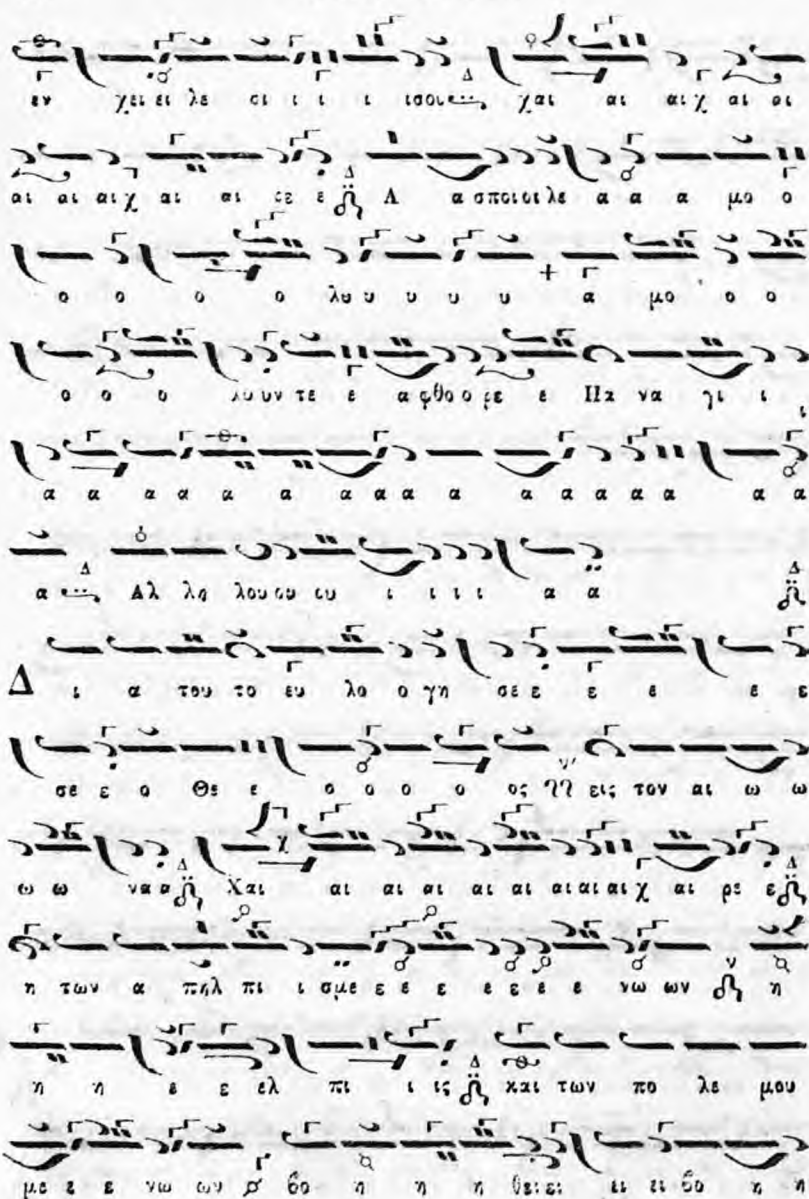 εν χει ει λε σι ι ι ι ισου χαι αι αι χ αι αι
αι αι αι χ αι αι ρε ε Α α σποι οι λε α α α μο ο
ο ο ο ο λυ υ υ υ υ α μο ο ο
ο ο ο λυ υν τε ε α φθο ο ρε ε Πα να γι ι
α α α α α α α α α α α α α α α α α
α Αλ λη λου ου ου ι ι ι ι α α
Δ ι α του το ευ λο ο γη σε ε ε ε ε ε
σε ε ο Θε ε ο ο ο ο ος εις τον αι ω ω
ω ω να α Χαι αι αι αι αι αι αι αι αι χ αι ρε ε
η των α πηλ πι ι σμε ε ε ε ε ε ε νω ων η
η η ε ε ελ πι ι ις και των πο λε μου
με ε ε νω ων βο η η η θει ει ει ει βο η η